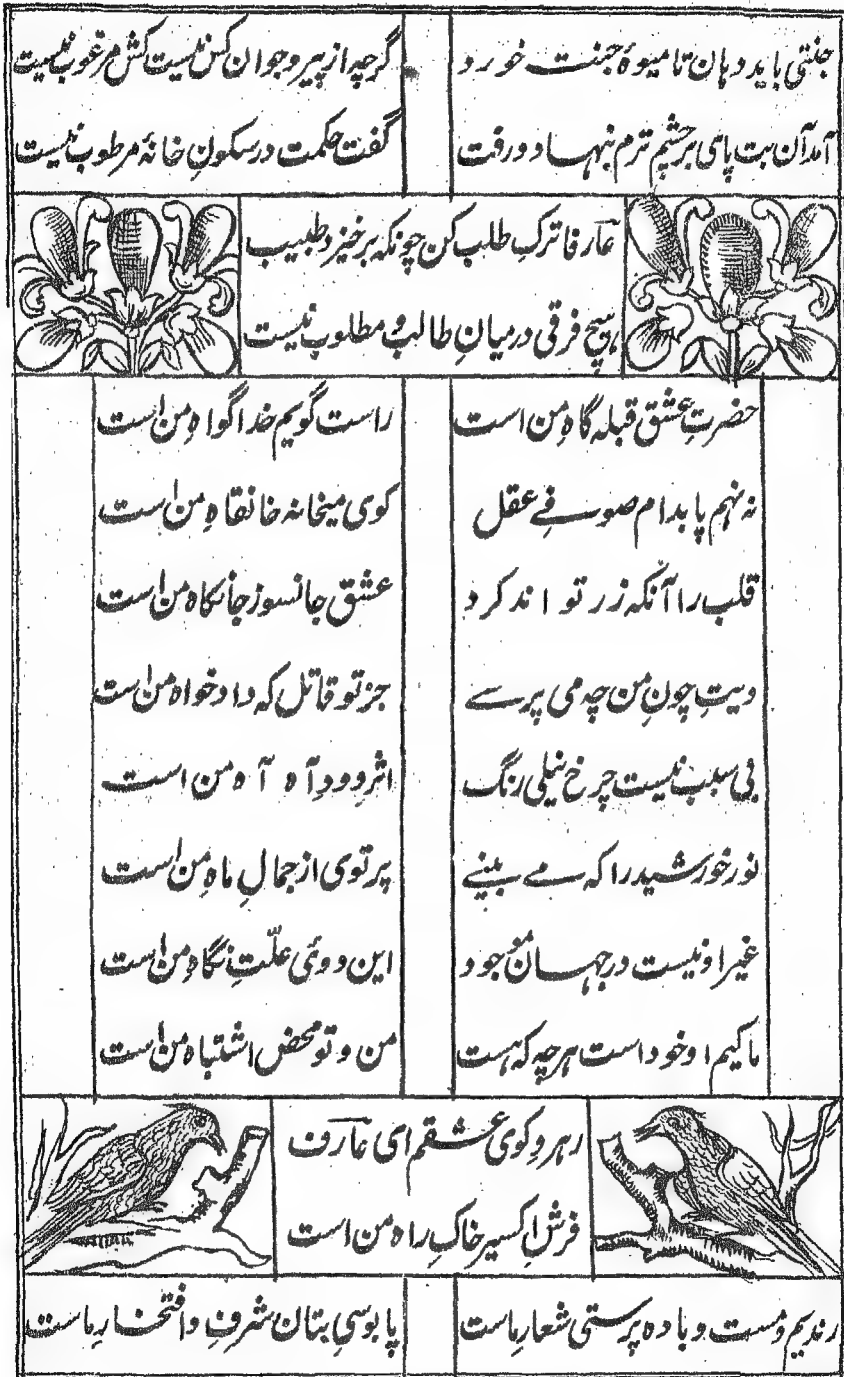 جنتی باید دهان تا میوهٔ جنت خورد گرچه از پیر و جوان کس نیست کش مرغوب نیست
آمد آن بت پای بر چشم ترم بنهاد و رفت گفت حکمت در سکونِ خانهٔ مرطوب نیست
عارفا ترکِ طلب کن چونکه برخیزد طبیب
هیچ فرقی درمیانِ طالب و مطلوب نیست
حضرتِ عشق قبله گاهِ من است راست گویم خدا گواهِ من است
نه نهم پا بدام صوفے عقل کوی میخانه خانقاهِ من است
قلب را آنکه زر تواند کرد عشق جانسوز جانکاه من است
دیتِ خونِ من چه می پرسے جز تو قاتل که دادخواه من است
بی سبب نیست چرخ نیلی رنگ اثرِ دودِ آه آه من است
نور خورشید را که مے بینے پرتوی از جمالِ ماهِ من است
غیر او نیست در جهان موجود این دوئی علّتِ نگاهِ من است
ما کیم او خود است هرچه که هست من و تو محض اشتباه من است
رهروِ کوی عشقم ای عارف
فرشِ اکسیر خاکِ راه من است
رندیم و مست و باده پرستی شعارِ ماست پابوسیِ بتان شرف و افتخارِ ماست